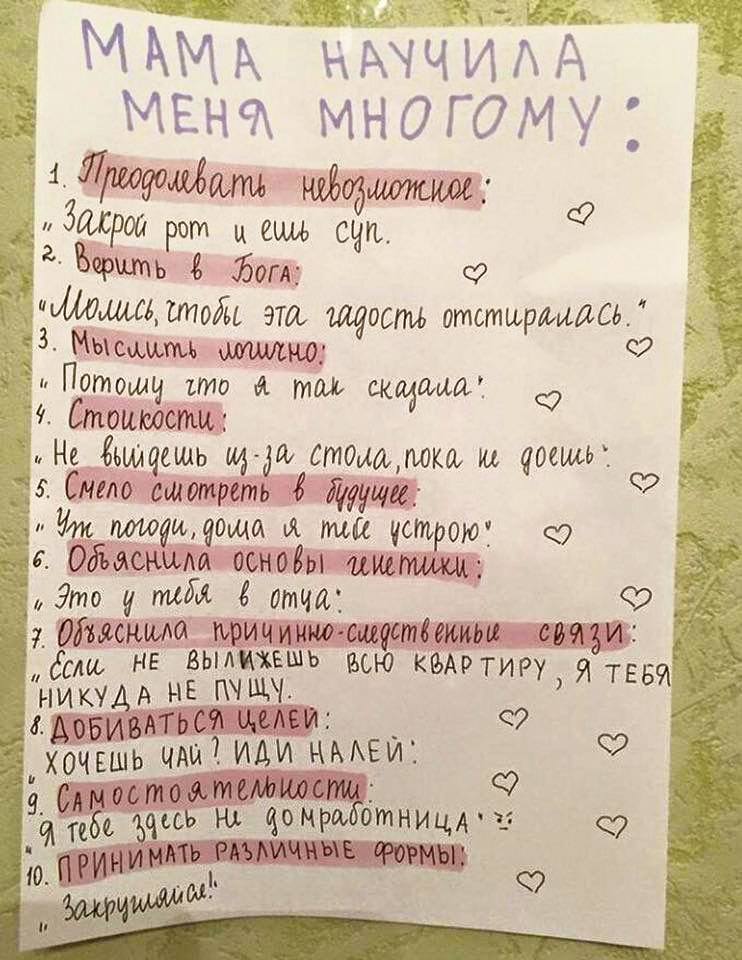 МАМА НАУЧИЛА
МЕНЯ МНОГОМУ:
1. Преодолевать невозможное:
„Закрой рот и ешь суп.
2. Верить в Бога:
"Молись, чтобы эта гадость отстиралась."
3. Мыслить логично:
„Потому что я так сказала"
4. Стойкости:
„Не выйдешь из-за стола, пока не доешь"
5. Смело смотреть в будущее:
„Уж погоди, дома я тебе устрою"
6. Объяснила основы генетики:
„Это у тебя в отца"
7. Объяснила причинно-следственные связи:
„Если НЕ ВЫЛИЖЕШЬ ВСЮ КВАРТИРУ, Я ТЕБЯ
НИКУДА НЕ ПУЩУ.
8. ДОБИВАТЬСЯ ЦЕЛЕЙ:
„ХОЧЕШЬ ЧАЙ? ИДИ НАЛЕЙ"
9. Самостоятельности:
"Я тебе здесь не домработница"
10. ПРИНИМАТЬ РАЗЛИЧНЫЕ ФОРМЫ:
„Закругляйся!"